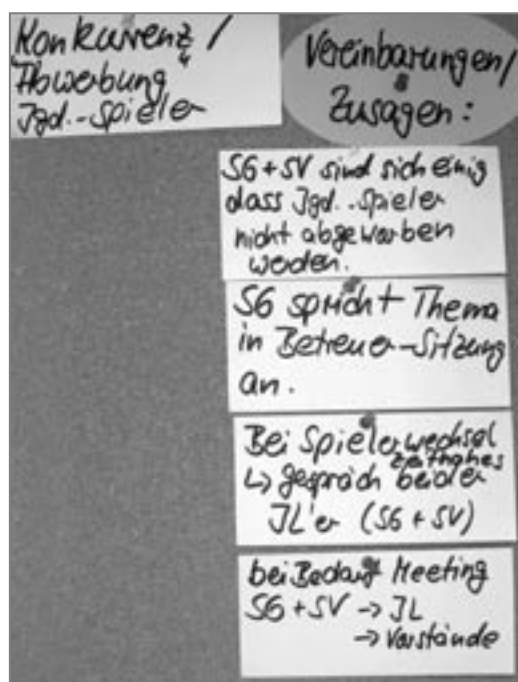 Konkurrenz /
Abwerbung
Jgd.-Spieler
Vereinbarungen/
Zusagen:
SG+SV sind sich einig
dass Jgd.-Spieler
nicht abgeworben
werden.
SG spricht Thema
in Betreuer-Sitzung
an.
Bei Spielerwechsel
zeitnahes
↳ gespräch beider
JL'er (SG+SV)
bei Bedarf Meeting
SG+SV → JL
→ Vorstände